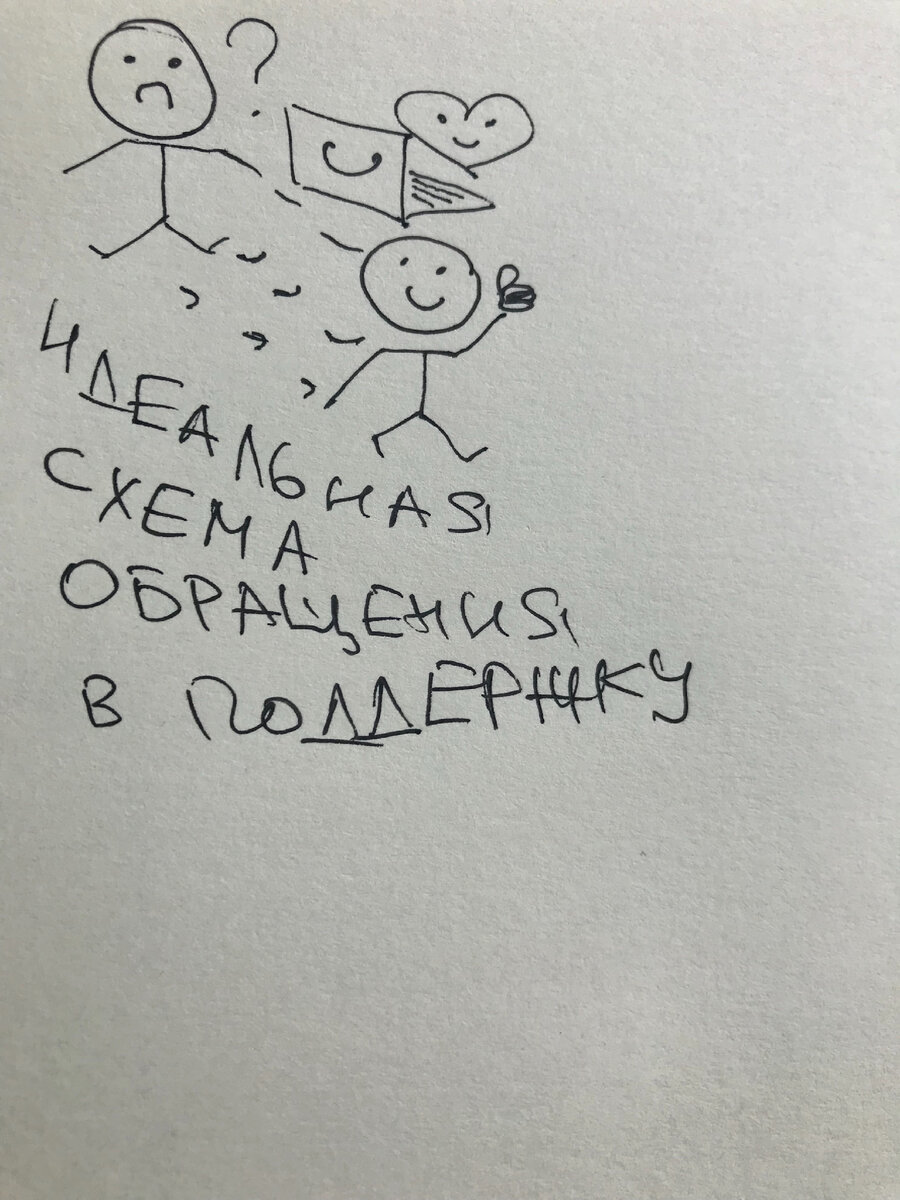 ?
ИДЕАЛЬНАЯ
СХЕМА
ОБРАЩЕНИЯ
В ПОДДЕРЖКУ